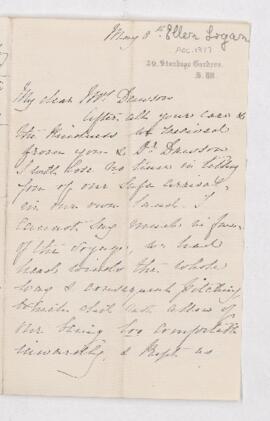 May 8th Ellen Logan
My dear Mrs Dawson
After all your care &
the kindness we received
from you & Dr Dawson
I will lose no time in telling
you of our safe arrival,
in our own land. I
cannot say much in favor
of the voyage, we had
head winds the whole
way & consequent pitching
which did not allow of
our being too comfortable
inwardly, & kept us